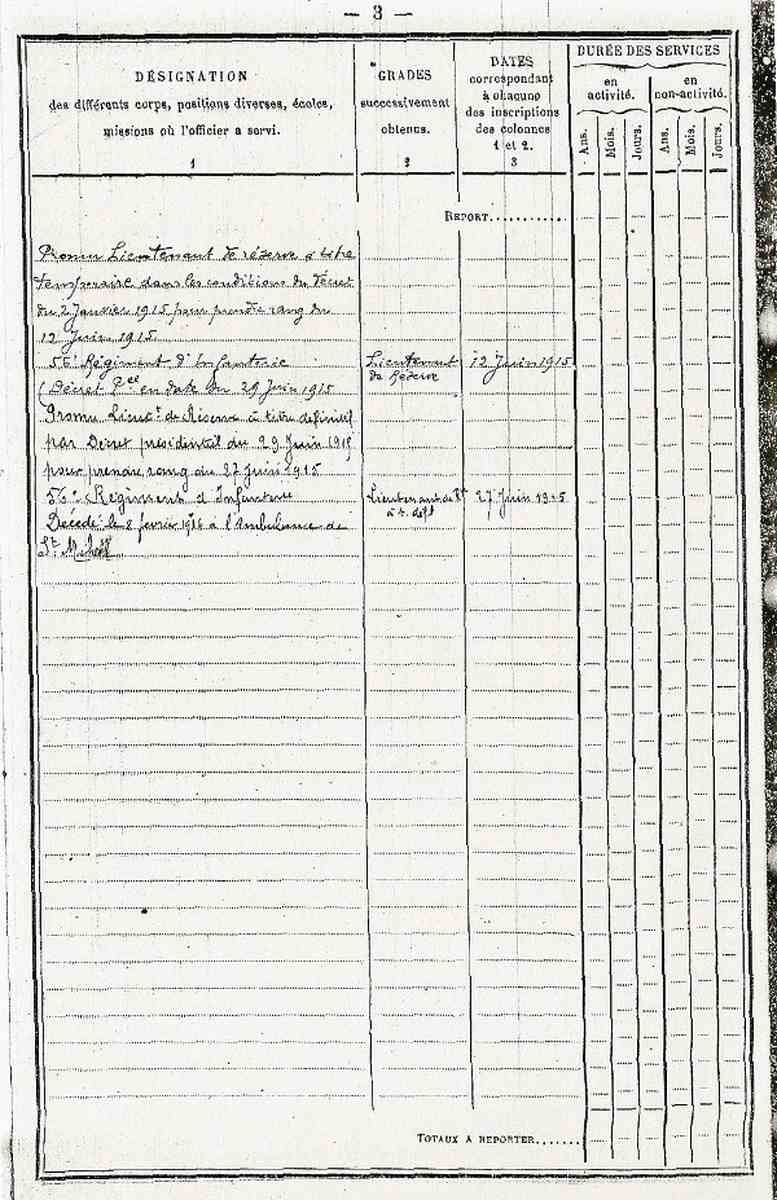 — 3 —
DÉSIGNATION
des différents corps, positions diverses, écoles,
missions où l'officier a servi.
1
GRADES
successivement
obtenus.
2
DATES
correspondant
à chacune
des inscriptions
des colonnes
1 et 2.
3
DURÉE DES SERVICES
en
activité.
en
non-activité.
Ans.
Mois.
Jours.
Ans.
Mois.
Jours.
REPORT
Promu Lieutenant de réserve à titre
temporaire dans les conditions du Décret
du 2 Janvier 1915 pour prendre rang du
12 Juin 1915.
56e Régiment d'Infanterie Lieutenant 12 Juin 1915
de Réserve
(Décret Pel en date du 29 Juin 1915
Promu Lieut. de Réserve à titre définitif
par Décret présidentiel du 29 Juin 1918
pour prendre rang du 27 Juin 1915
56e Régiment d'Infanterie Lieutenant de Rt 27 Juin 1915
à t. defl
Décédé le 8 fevrier 1916 à l'Ambulance de
St Mihiel
TOTAUX A REPORTER